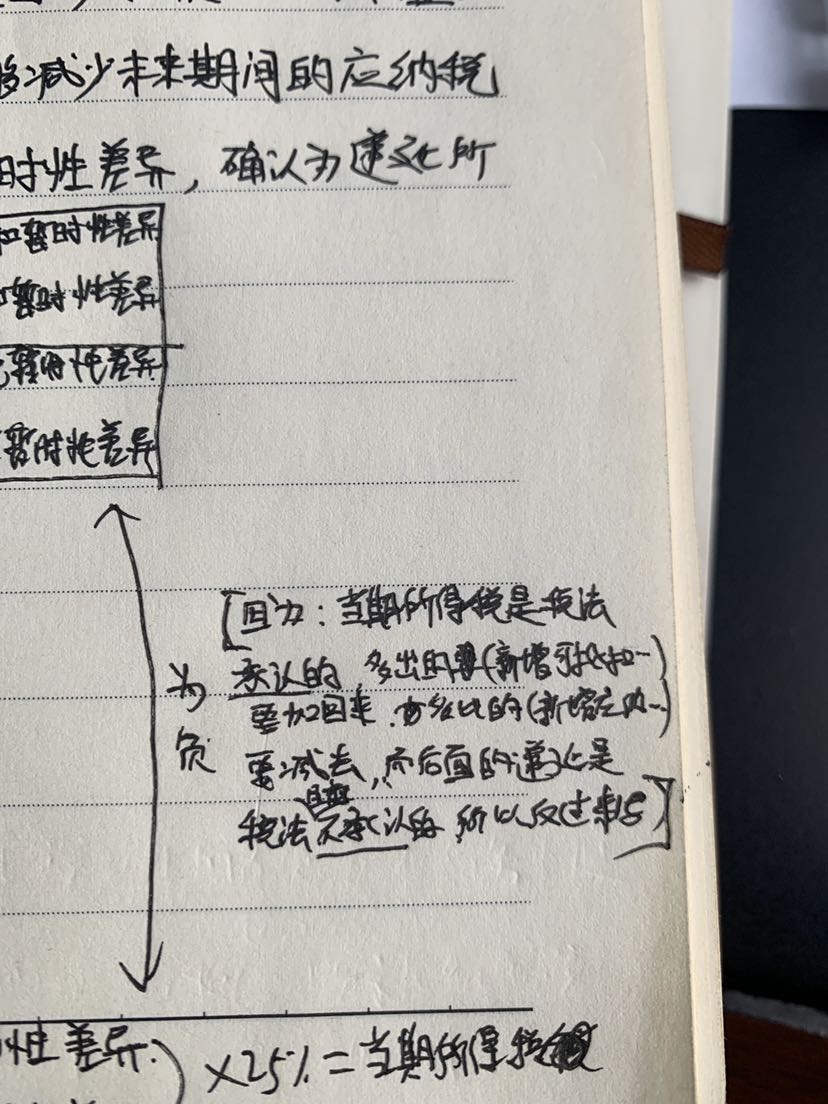 减少未来期间的应纳税
时性差异，确认为递延所
扣暂时性差异
暂时性差异
暂时性差异
暂时性差异
[因为：当期所得税是税法
为 承认的，多出的要(新增可抵扣…)
要加回来，(新增应纳…)
负 要减去，而后面的递延是
税法目前不承认的 所以反过来写]
性差异) ×25% = 当期所得税